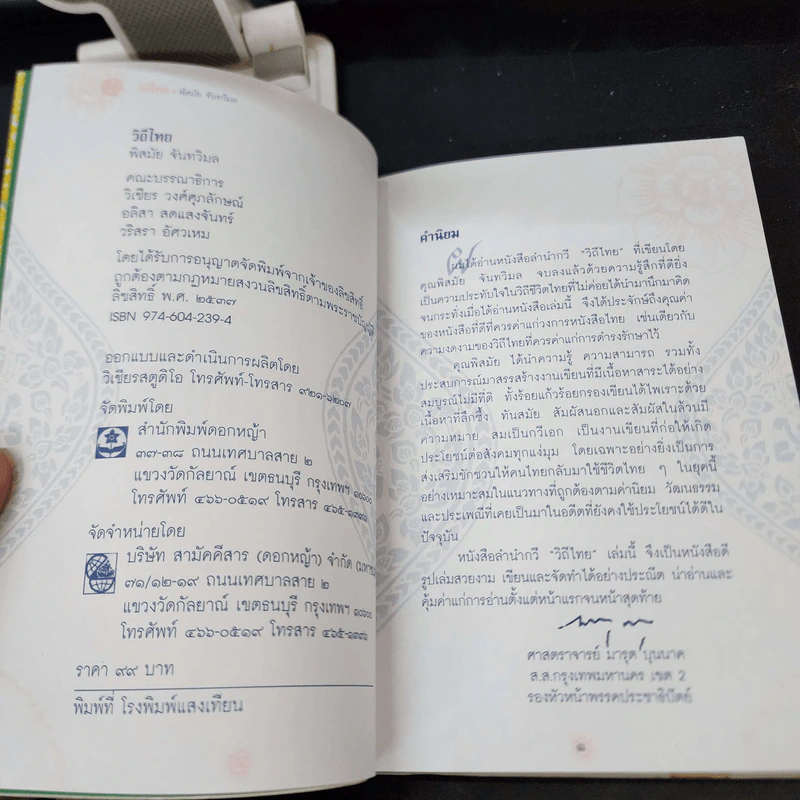 วิถีไทย • พิสมัย จันทวิมล
วิถีไทย
พิสมัย จันทวิมล
คณะบรรณาธิการ
วิเชียร วงศ์ศุภลักษณ์
อลิสา สดแสงจันทร์
วริสรา อัศวเหม
โดยได้รับการอนุญาตจัดพิมพ์จากเจ้าของลิขสิทธิ์
ถูกต้องตามกฎหมายสงวนลิขสิทธิ์ตามพระราชบัญญัติ
ลิขสิทธิ์ พ.ศ. ๒๕๓๗
ISBN 974-604-239-4
ออกแบบและดำเนินการผลิตโดย
วิเชียรสตูดิโอ โทรศัพท์-โทรสาร ๙๒๑-๖๒๐๗
จัดพิมพ์โดย
สำนักพิมพ์ดอกหญ้า
๓๗-๓๘ ถนนเทศบาลสาย ๒
แขวงวัดกัลยาณ์ เขตธนบุรี กรุงเทพฯ ๑๐๖๐๐
โทรศัพท์ ๔๖๖-๐๕๑๙ โทรสาร ๔๖๕-๑๓๓๑
จัดจำหน่ายโดย
บริษัท สามัคคีสาร (ดอกหญ้า) จำกัด
๓๗/๑๒-๑๙ ถนนเทศบาลสาย ๒
แขวงวัดกัลยาณ์ เขตธนบุรี กรุงเทพฯ ๑๐๖๐๐
โทรศัพท์ ๔๖๖-๐๕๑๙ โทรสาร
ราคา ๙๙ บาท
พิมพ์ที่ โรงพิมพ์แสงเทียน
คำนิยม
ผมได้อ่านหนังสือลำนำกวี "วิถีไทย" ที่เขียนโดย
คุณพิสมัย จันทวิมล จบลงแล้วด้วยความรู้สึกที่ดียิ่ง
เป็นความประทับใจในวิถีชีวิตไทยที่ไม่ค่อยได้นำมานึกมาคิด
จนกระทั่งเมื่อได้อ่านหนังสือเล่มนี้ จึงได้ประจักษ์ถึงคุณค่า
ของหนังสือที่ดีที่ควรค่าแก่วงการหนังสือไทย เช่นเดียวกับ
ความงดงามของวิถีไทยที่ควรค่าแก่การดำรงรักษาไว้
คุณพิสมัย ได้นำความรู้ ความสามารถ รวมทั้ง
ประสบการณ์มาสรรสร้างงานเขียนที่มีเนื้อหาสาระได้อย่าง
สมบูรณ์ไม่มีที่ติ ทั้งร้อยแก้วร้อยกรองเขียนได้ไพเราะด้วย
เนื้อหาที่ลึกซึ้ง ทันสมัย สัมผัสนอกและสัมผัสในล้วนมี
ความหมาย สมเป็นกวีเอก เป็นงานเขียนที่ก่อให้เกิด
ประโยชน์ต่อสังคมทุกแง่มุม โดยเฉพาะอย่างยิ่งเป็นการ
ส่งเสริมชักชวนให้คนไทยกลับมาใช้ชีวิตไทย ๆ ในยุคนี้
อย่างเหมาะสมในแนวทางที่ถูกต้องตามค่านิยม วัฒนธรรม
และประเพณีที่เคยเป็นมาในอดีตที่ยังคงใช้ประโยชน์ได้ดีใน
ปัจจุบัน
หนังสือลำนำกวี "วิถีไทย" เล่มนี้ จึงเป็นหนังสือดี
รูปเล่มสวยงาม เขียนและจัดทำได้อย่างประณีต น่าอ่านและ
คุ้มค่าแก่การอ่านตั้งแต่หน้าแรกจนหน้าสุดท้าย
ศาสตราจารย์ มารุต บุนนาค
ส.ส.กรุงเทพมหานคร เขต 2
รองหัวหน้าพรรคประชาธิปัตย์